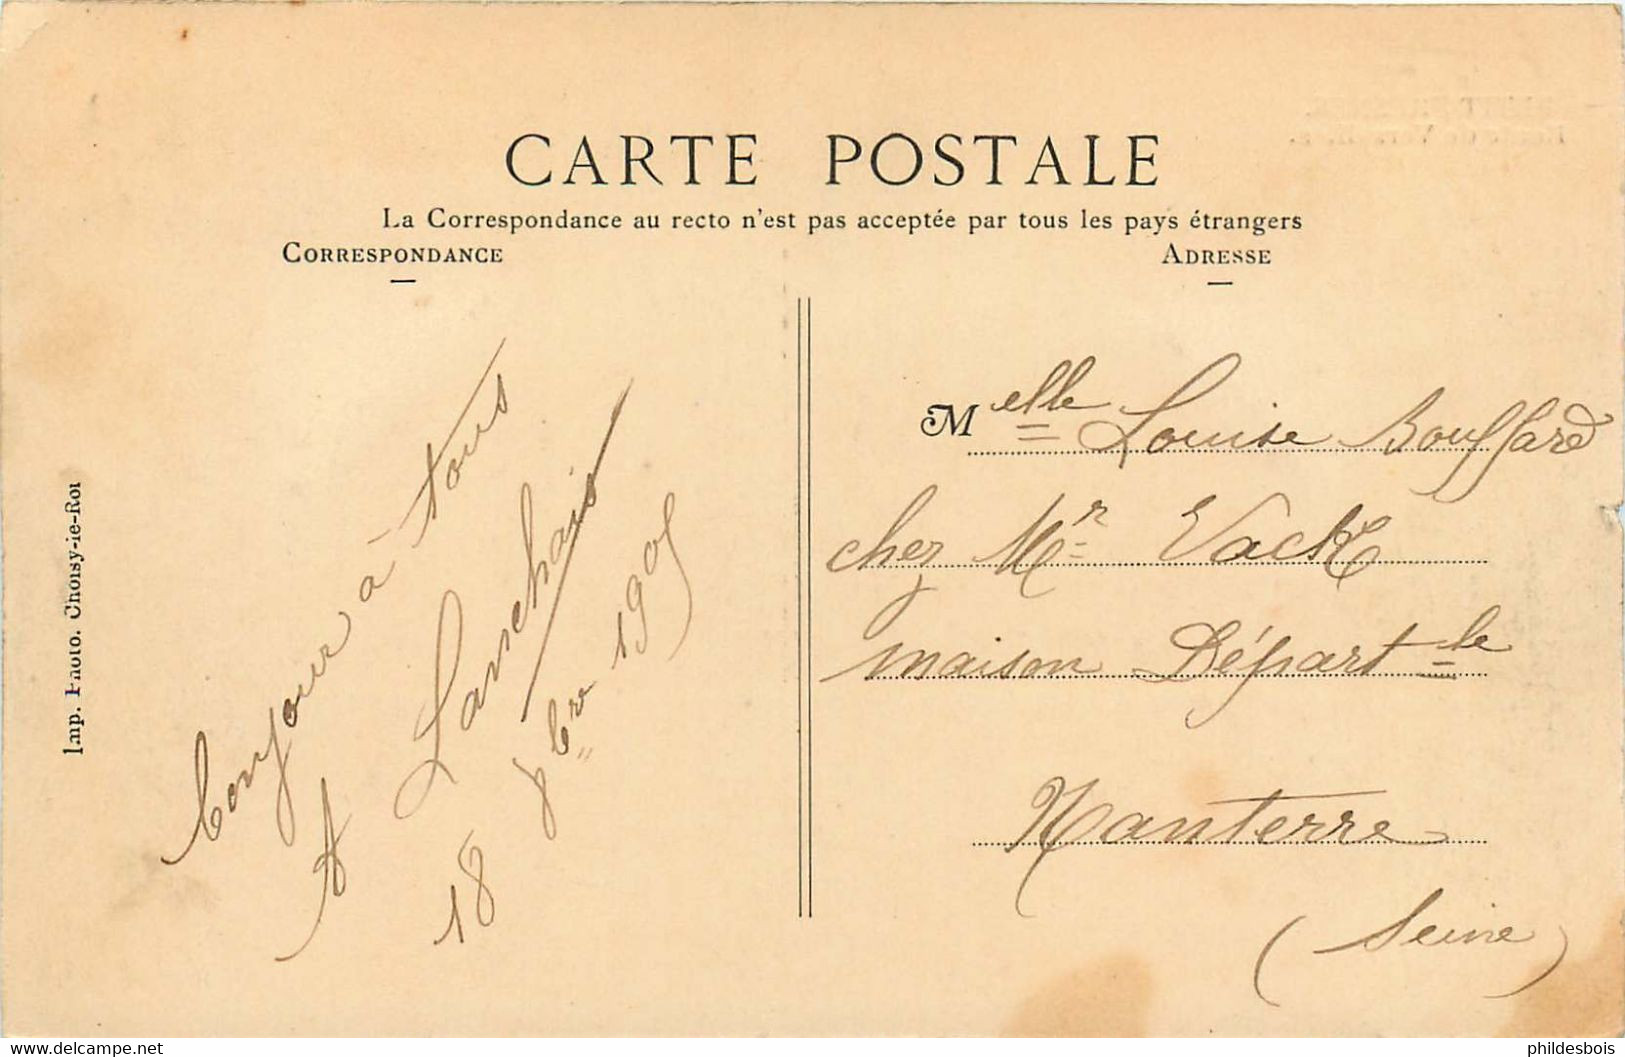 CARTE POSTALE
La Correspondance au recto n'est pas acceptée par tous les pays étrangers
CORRESPONDANCE
ADRESSE
Imp. Photo. Choisy-le-Roi
bonjour à tous
A Lanchais
18 8bre 1905
Melle Louise Bouffard
chez Mr Vack
maison Départle
Nanterre
(Seine)
philde​sbois